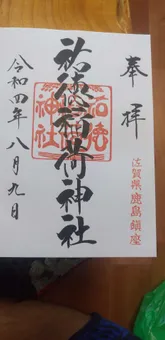 奉拝
佐賀県鹿島鎮座
祐徳稲荷神社
祐徳神社
令和四年八月九日